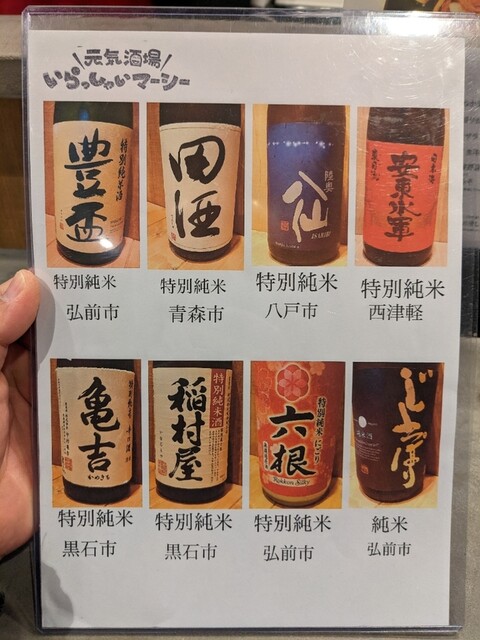 元気酒場
いらっしゃいマーシー
特別純米酒
豊盃
田酒
陸奥
八仙
安東水軍
特別純米
特別純米
特別純米
特別純米
弘前市
青森市
八戸市
西津軽
亀吉
かめきち
特別純米酒
稲村屋
特別純米 にごり
六根
Rokkon Silky
じょっぱり
純米酒
特別純米
特別純米
特別純米
純米
黒石市
黒石市
弘前市
弘前市